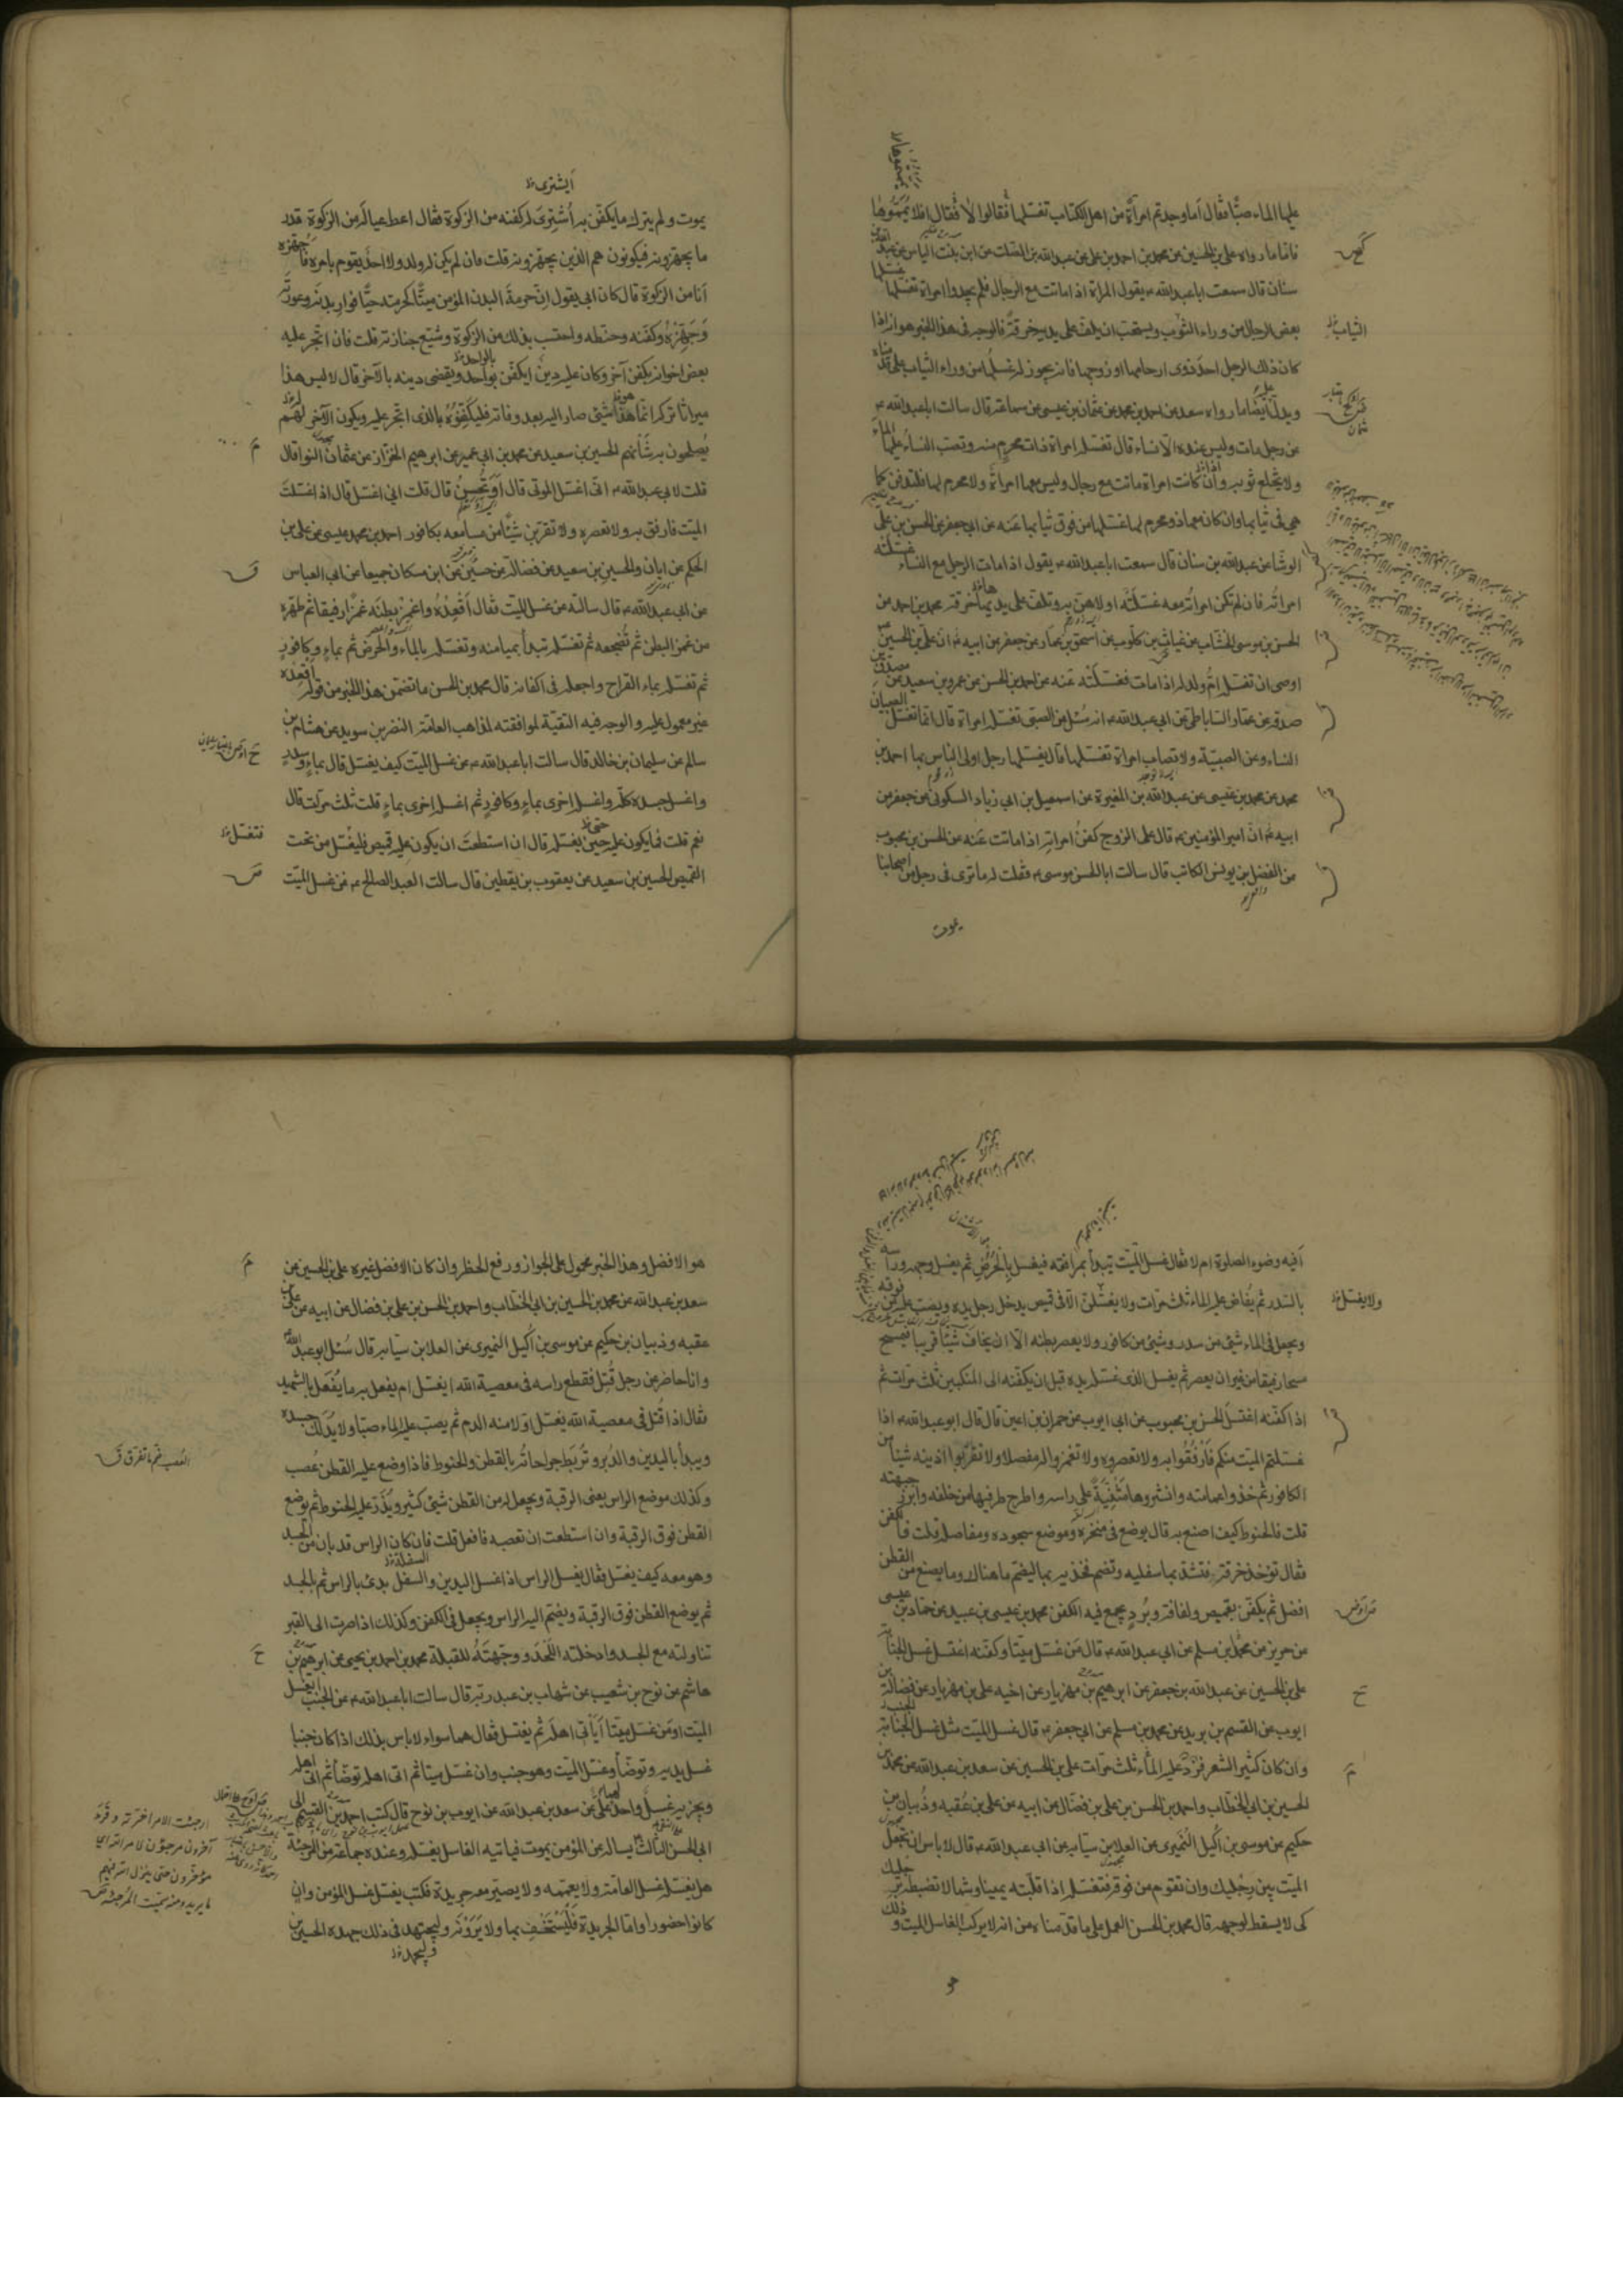 عليها الماء صبّا فقال أما وجدتم امرأة من اهل الكتاب تغسلها فقالوا لا فقال افلا يمّموها
فاما ما رواه علي بن الحسين عن محمد بن احمد بن علي عن عبد الله بن الصلت عن ابن بنت الياس عن عبد الله بن
سنان قال سمعت ابا عبد الله ع يقول المراة اذا ماتت مع الرجال فلم يجدوا امراة تغسلها غسلها
بعض الرجال من وراء الثوب ويستحب ان يلف على يديه خرقة فالوجه في هذا الخبر هو انه اذا
كان ذلك الرجل احد ذوى ارحامها او زوجها فانه يجوز له غسلها من وراء الثياب على ما قدمناه
ويدل عليه ايضا ما رواه سعد عن احمد بن محمد عن عثمان بن عيسى عن سماعة قال سالت ابا عبد الله ع
عن رجل مات وليس عنده الا نساء قال تغسله امراة ذات محرم منه وتصب النساء عليها الماء
ولا يخلع ثوبه وان كانت امراة ماتت مع رجال وليس معها امراة ولا محرم لها فلتدفن كما
هي في ثيابها وان كان معها ذو محرم لها غسلها من فوق ثيابها عنه عن ابي جعفر عن الحسن بن علي
الوشا عن عبد الله بن سنان قال سمعت ابا عبد الله ع يقول اذا مات الرجل مع النساء غسلته
امراته فان لم تكن امراته معه غسلته اولاهن به وتلف على يديها خرقة محمد بن احمد عن
الحسن بن موسى الخشاب عن غياث بن كلوب عن اسحق بن عمار عن جعفر عن ابيه ع ان علي بن الحسين
اوصى ان تغسله ام ولد له اذا مات فغسلته عنه عن احمد بن الحسن عن عمرو بن سعيد عن مصدق بن
صدقة عن عمار الساباطي عن ابي عبد الله ع انه سئل عن الصبي تغسله امراة قال انما تغسل الصبيان
النساء وعن الصبية ولا تصاب امراة تغسلها قال يغسلها رجل اولى الناس بها احمد بن
محمد عن محمد بن عيسى عن عبد الله بن المغيرة عن اسمعيل بن ابي زياد السكوني عن جعفر عن
ابيه ع ان امير المؤمنين ع قال على الزوج كفن امراته اذا ماتت عنه عن الحسن بن محبوب
عن الفضل بن يونس الكاتب قال سالت ابا الحسن موسى ع فقلت له ما ترى في رجل من اصحابنا
يموت
الثياب
ايشترى
يموت ولم يترك ما يكفن به أشترى له كفنه من الزكوة فقال اعط عياله من الزكوة قدر
ما يجهزونه فيكونون هم الذين يجهزونه قلت فان لم يكن له ولد ولا احد يقوم بامره فاجهزه
انا من الزكوة قال كان ابي يقول ان حرمة البدن المؤمن ميتا كحرمته حيا فوار بدنه وعورته
وجهزه وكفنه وحنطه واحتسب بذلك من الزكوة وشيع جنازته قلت فان اتجر عليه
بعض اخوانه بكفن آخر وكان عليه دين ايكفن بواحد ويقضى دينه بالآخر قال لا ليس هذا
ميراثا تركه انما هذا شئ صار اليه بعد وفاته فليكفنوه بالذى اتجر عليه ويكون الآخر لهم
يصلحون به شأنهم الحسين بن سعيد عن محمد بن ابي عمير عن ابرهيم الخزاز عن عثمان النوا قال
قلت لابي عبد الله ع اني اغسل الموتى قال أوتحسن قال قلت اني اغسل قال اذا غسلت
الميت فارفق به ولا تعصره ولا تقربن شيئا من مسامعه بكافور احمد بن محمد بن عيسى عن علي بن
الحكم عن ابان والحسين بن سعيد عن فضالة عن حسين عن ابن مسكان جميعا عن ابي العباس
عن ابي عبد الله ع قال سالته عن غسل الميت فقال أقعده واغمز بطنه غمزا رفيقا ثم طهره
من غمز البطن ثم تضجعه ثم تغسله تبدأ بميامنه وتغسله بالماء والحرض ثم بماء وكافور
ثم تغسله بماء القراح واجعله في اكفانه قال محمد بن الحسن ما تضمن هذا الخبر من قوله اقعده
غير معمول عليه والوجه فيه التقية لموافقته لمذاهب العامة النضر بن سويد عن هشام بن
سالم عن سليمان بن خالد قال سالت ابا عبد الله ع عن غسل الميت كيف يغسل قال بماء وسدر
واغسل جسده كله واغسله اخرى بماء وكافور ثم اغسله اخرى بماء قلت ثلث مرات قال
نعم قلت فما يكون عليه حين يغسله قال ان استطعت ان يكون عليه قميص فليغسل من تحت
القميص الحسين بن سعيد عن يعقوب بن يقطين قال سالت العبد الصالح ع عن غسل الميت
أفيه وضوء الصلوة ام لا فقال غسل الميت تبدأ بمرافقه فيغسل بالحرض ثم يغسل وجهه وراسه
بالسدر ثم يفاض عليه الماء ثلث مرات ولا يغسلن الا في قميص يدخل رجل يده ويصب عليه من فوقه
ويجعل في الماء شئ من سدر وشئ من كافور ولا يعصر بطنه الا ان يخاف شيئا قريبا فيمسح
مسحا رفيقا من غير ان يعصر ثم يغسل الذى غسله يده قبل ان يكفنه الى المنكبين ثلث مرات ثم
اذا كفنه اغتسل الحسن بن محبوب عن ابي ايوب عن حمران بن اعين قال قال ابو عبد الله ع اذا
غسلتم الميت منكم فارفقوا به ولا تعصروه ولا تغمزوا له مفصلا ولا تقربوا اذنيه شيئا من
الكافور ثم خذوا عمامته وانشروها مثنية على راسه واطرح طرفيها من خلفه وابرز جبهته
قلت فالحنوط كيف اصنع به قال يوضع في منخره وموضع سجوده ومفاصله قلت فالكفن
فقال تؤخذ خرقة فتشد بها سفليه وتضم فخذيه بها ليضم ما هناك وما يصنع من القطن
افضل ثم يكفن بقميص ولفافة وبرد يجمع فيه الكفن محمد بن عيسى بن عبيد عن حماد بن عيسى
عن حريز عن محمد بن مسلم عن ابي عبد الله ع قال من غسل ميتا وكفنه اغتسل غسل الجنابة
علي بن الحسين عن عبد الله بن جعفر عن ابرهيم بن مهزيار عن اخيه علي بن مهزيار عن فضالة بن
ايوب عن القسم بن بريد عن محمد بن مسلم عن ابي جعفر ع قال غسل الميت مثل غسل الجنب
وان كان كثير الشعر فزد عليه الماء ثلث مرات علي بن الحسين عن سعد بن عبد الله عن محمد بن
الحسين بن ابي الخطاب واحمد بن الحسن بن علي بن فضال عن ابيه عن علي بن عقبه وذبيان بن
حكيم عن موسى بن اكيل النميرى عن العلا بن سيابه عن ابي عبد الله ع قال لا باس ان تجعل
الميت بين رجليك وان تقوم من فوقه فتغسله اذا قلبته يمينا وشمالا تضبطه برجليك
كى لا يسقط لوجهه قال محمد بن الحسن العمل على ما قدمناه من انه لا يركب الغاسل الميت وذلك
هو
ولا يغسل
هو الافضل وهذا الخبر محمول على الجواز ورفع الحظر وان كان الافضل غيره علي بن الحسين عن
سعد بن عبد الله عن محمد بن الحسين بن ابي الخطاب واحمد بن الحسن بن علي بن فضال عن ابيه عن علي بن
عقبه وذبيان بن حكيم عن موسى بن اكيل النميرى عن العلا بن سيابه قال سئل ابو عبد الله
وانا حاضر عن رجل قتل فقطع راسه في معصية الله ايغسل ام يفعل به ما يفعل بالشهيد
فقال اذا قتل في معصية الله يغسل اولا منه الدم ثم يصب عليه الماء صبا ولا يدلك جسده
ويبدأ باليدين والدبر وتربط جراحاته بالقطن والحنوط فاذا وضع عليه القطن عصب
وكذلك موضع الراس يعنى الرقبة ويجعل له من القطن شئ كثير ويذر عليه الحنوط ثم يوضع
القطن فوق الرقبة وان استطعت ان تعصبه فافعل قلت فان كان الراس قد بان من الجسد
وهو معه كيف يغسل فقال يغسل الراس اذا غسل اليدين والسفل بدئ بالراس ثم بالجسد
ثم يوضع القطن فوق الرقبة ويضم اليه الراس ويجعل في الكفن وكذلك اذا صرت الى القبر
تناولته مع الجسد وادخلته اللحد ووجهته للقبلة محمد بن احمد بن يحيى عن ابرهيم بن
هاشم عن نوح بن شعيب عن شهاب بن عبد ربه قال سالت ابا عبد الله ع عن الجنب ايغسل
الميت او من غسل ميتا أيأتي اهله ثم يغتسل فقال هما سواء لا باس بذلك اذا كان جنبا
غسل يديه وتوضأ وغسل الميت وهو جنب وان غسل ميتا ثم اتى اهله توضأ ثم اتى اهله
ويجزيه غسل واحد لهما علي عن سعد بن عبد الله عن ايوب بن نوح قال كتب احمد بن القسم الى
ابي الحسن الثالث ع يساله عن المؤمن يموت فياتيه الغاسل يغسله وعنده جماعة من المرجئة
هل يغسله غسل العامة ولا يعممه ولا يصير معه جريدة فكتب يغسل غسل المؤمن وان
كانوا حضورا واما الجريدة فليستخف بها ولا يرونه وليجتهد في ذلك جهده الحسين بن
وليجهد
ارجئت الامر اخرته وقرء
آخرون مرجؤن لامر الله اى
مؤخرون حتى ينزل الله فيهم
ما يريد ومنه سميت المرجئة